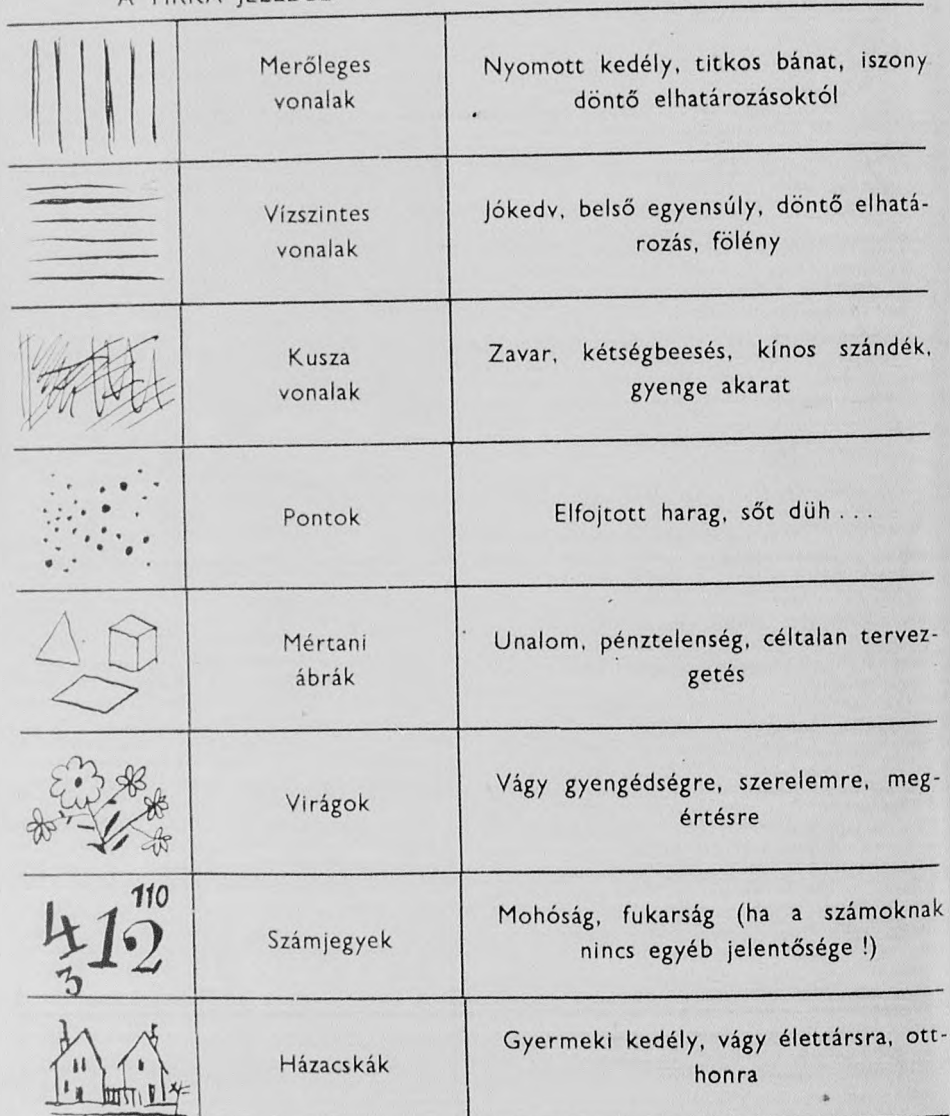 Merőleges
vonalak
Nyomott kedély, titkos bánat, iszony
döntő elhatározásoktól
Vízszintes
vonalak
Jókedv, belső egyensúly, döntő elhatá-
rozás, fölény
Kusza
vonalak
Zavar, kétségbeesés, kínos szándék,
gyenge akarat
Pontok
Elfojtott harag, sőt düh . . .
Mértani
ábrák
Unalom, pénztelenség, céltalan tervez-
getés
Virágok
Vágy gyengédségre, szerelemre, meg-
értésre
4 3 12 110
Számjegyek
Mohóság, fukarság (ha a számoknak
nincs egyéb jelentősége !)
Házacskák
Gyermeki kedély, vágy élettársra, ott-
honra